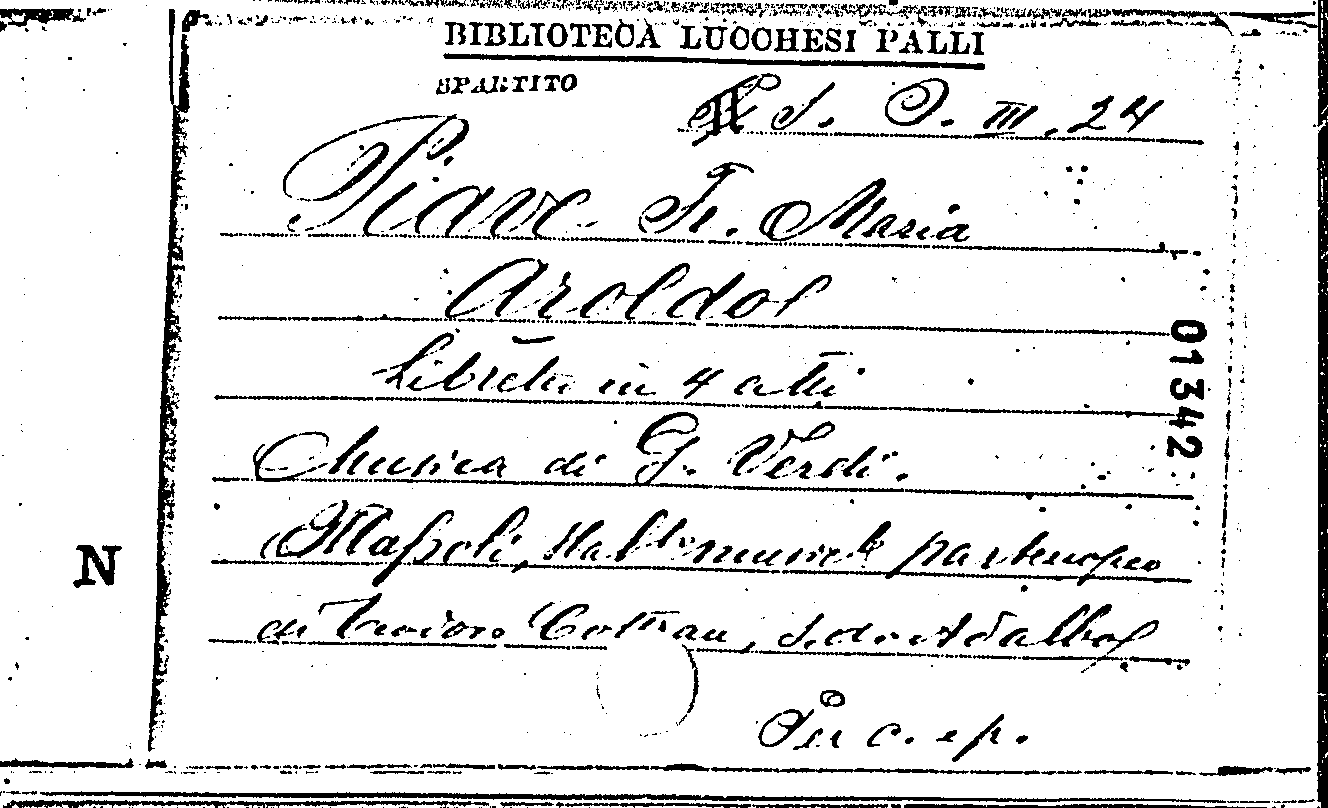 BIBLIOTECA LUCCHESI PALLI
SPARTITO
S. O. III. 24
Piave Fr. Maria
Aroldo
Libretto in 4 atti
Musica di G. Verdi.
Napoli, Stab. musicale partenopeo
di Teodoro Cottrau, s. d.
Per c. e p.
01342
N